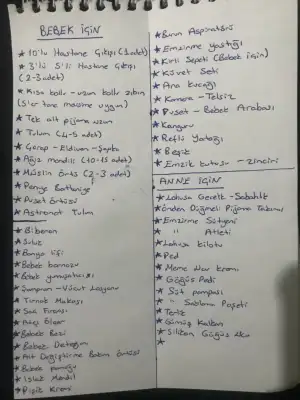 BEBEK İÇİN
★ 10'lu Hastane Çıkışı (1 adet)
★ 3'lü 5'li Hastane Çıkışı
(2-3 adet)
★ Kısa kollu - uzun kollu zıbın
(5'er tane mevsime uygun)
★ Tek alt pijama uzun
★ Tulum (4-5 adet)
★ Çorap - Eldiven - Şapka
★ Ağız mendili (10-15 adet)
★ Müslin Örtü (2-3 adet)
★ Penye Battaniye
★ Puset Örtüsü
★ Astronot Tulum
★ Biberon
★ Suluk
★ Banyo lifi
★ Bebek bornozu
★ Bebek yumuşatıcısı
★ Şampuan - Vücut Losyonu
★ Tırnak Makası
★ Saç Fırçası
★ Ateş Ölçer
★ Bebek Bezi
★ Bebek Deterjanı
★ Alt Değiştirme Bakım Örtüsü
★ Bebek pamuğu
★ Islak Mendil
★ Pişik Kremi
★ Burun Aspiratörü
★ Emzirme yastığı
★ Kirli Sepeti (Bebek için)
★ Küvet Seti
★ Ana Kucağı
★ Kamera - Telsiz
★ Puset - Bebek Arabası
★ Kanguru
★ Reflü Yatağı
★ Beşik
★ Emzik kutusu - zinciri
ANNE İÇİN
★ Lohusa Gecelik - Sabahlık
★ Önden Düğmeli Pijama Takımı
★ Emzirme Sütyeni
★ " Atleti
★ Lohusa kilotu
★ Ped
★ Meme Ucu kremi
★ Göğüs Pedi
★ Süt pompası
★ " Saklama Poşeti
★ Terlik
★ Gümüş Kalkan
★ Silikon Göğüs Ucu
★